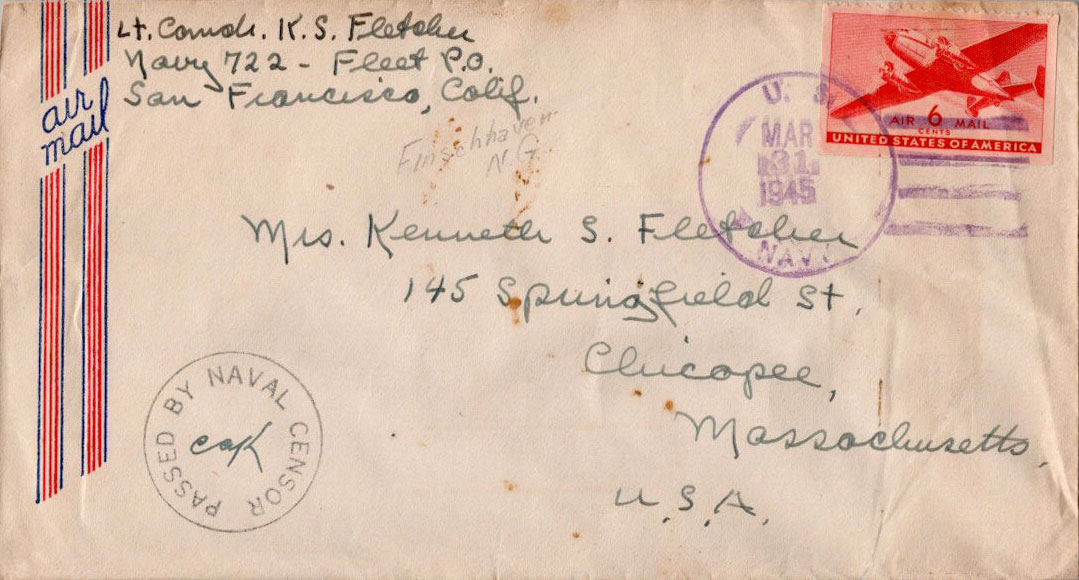 Lt. Comdr. K. S. Fletcher
Navy 722 - Fleet P.O.
San Francisco, Calif.
air
mail
Finschhaven
N.G.
AIR 6 MAIL
CENTS
UNITED STATES OF AMERICA
U. S.
MAR
31
1945
NAVY
Mrs. Kenneth S. Fletcher
145 Springfield St.
Chicopee,
Massachusetts,
U.S.A.
PASSED BY NAVAL CENSOR
caK